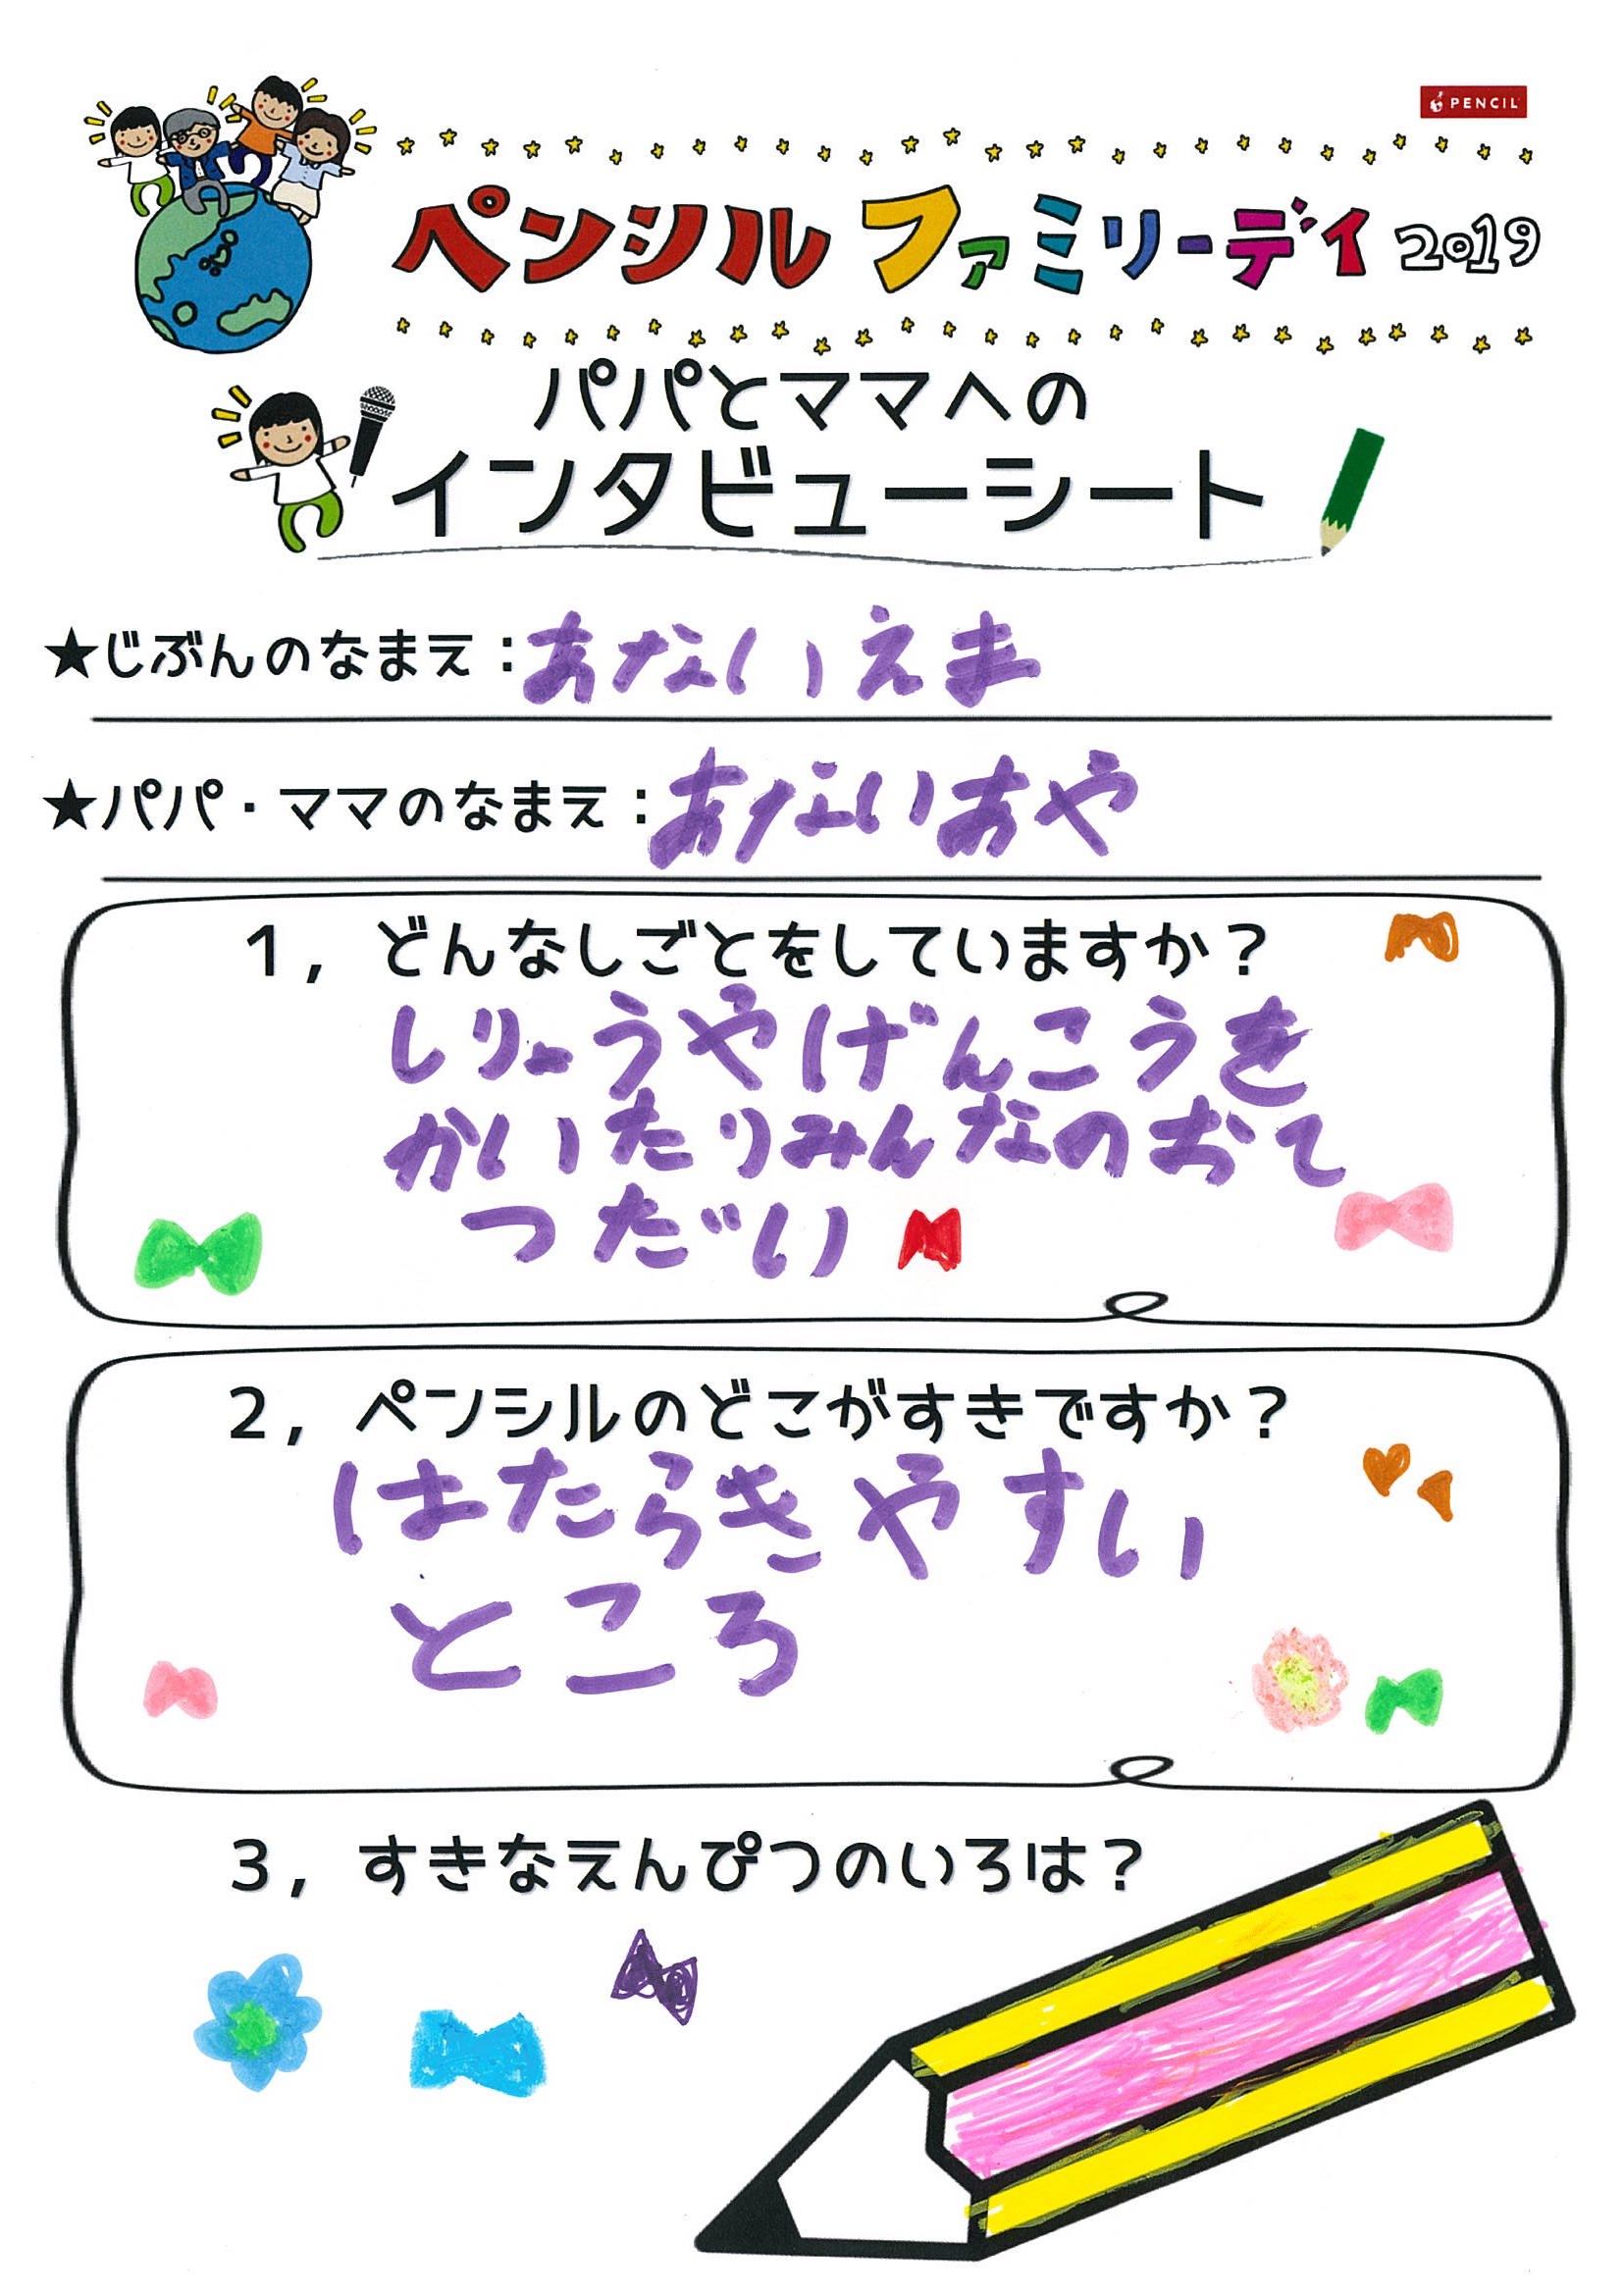 PENCIL
ペンシル ファミリーデイ 2019
パパとママへの
インタビューシート
★じぶんのなまえ：あないえま
★パパ・ママのなまえ：あないあや
1, どんなしごとをしていますか？
しりょうやげんこうを
かいたりみんなのおて
つだい
2, ペンシルのどこがすきですか？
はたらきやすい
ところ
3, すきなえんぴつのいろは？